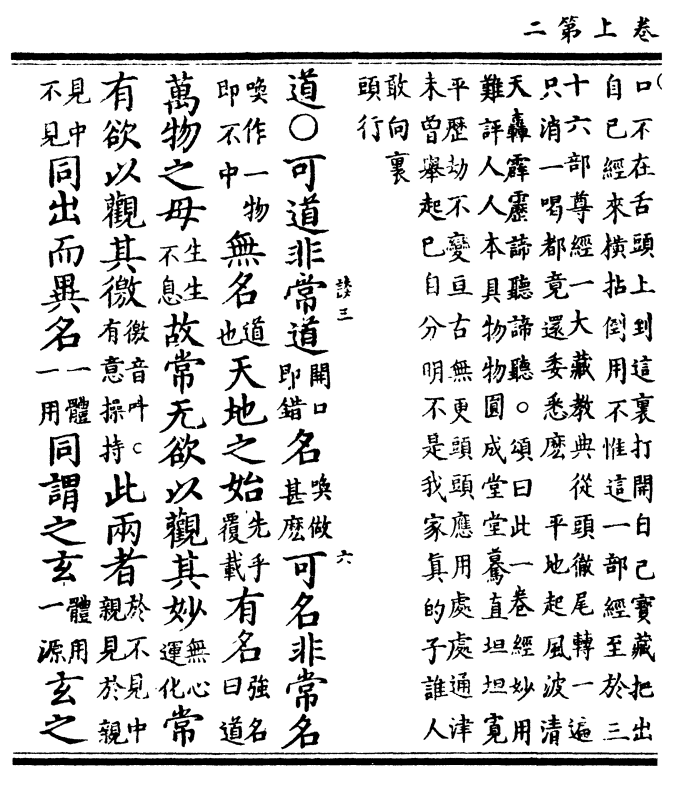 卷上第二
口不在舌頭上到這裏打開自己寶藏把出
自己經來橫拈倒用不惟這一部經至於三
十六部尊經一大藏教典從頭徹尾轉一遍
只消一喝都竟還委悉麽　平地起風波清
天轟霹靂諦聽諦聽。頌曰此一卷經妙用
難評人人本具物物圓成堂堂驀直坦坦寬
平歷劫不變亘古無更頭頭應用處處通津
未曾舉起已自分明不是我家真的子誰人
敢向裏
頭行
談三　六
道○可道非常道開口即錯名喚做甚麽可名非常名
喚作一物即不中無名道也天地之始先乎覆載有名強名曰道
萬物之母生生不息故常无欲以觀其妙無心運化常
有欲以觀其徼徼音叫○有意操持此兩者於不見中親見於親
見中不見同出而異名一體一用同謂之玄體用一源玄之